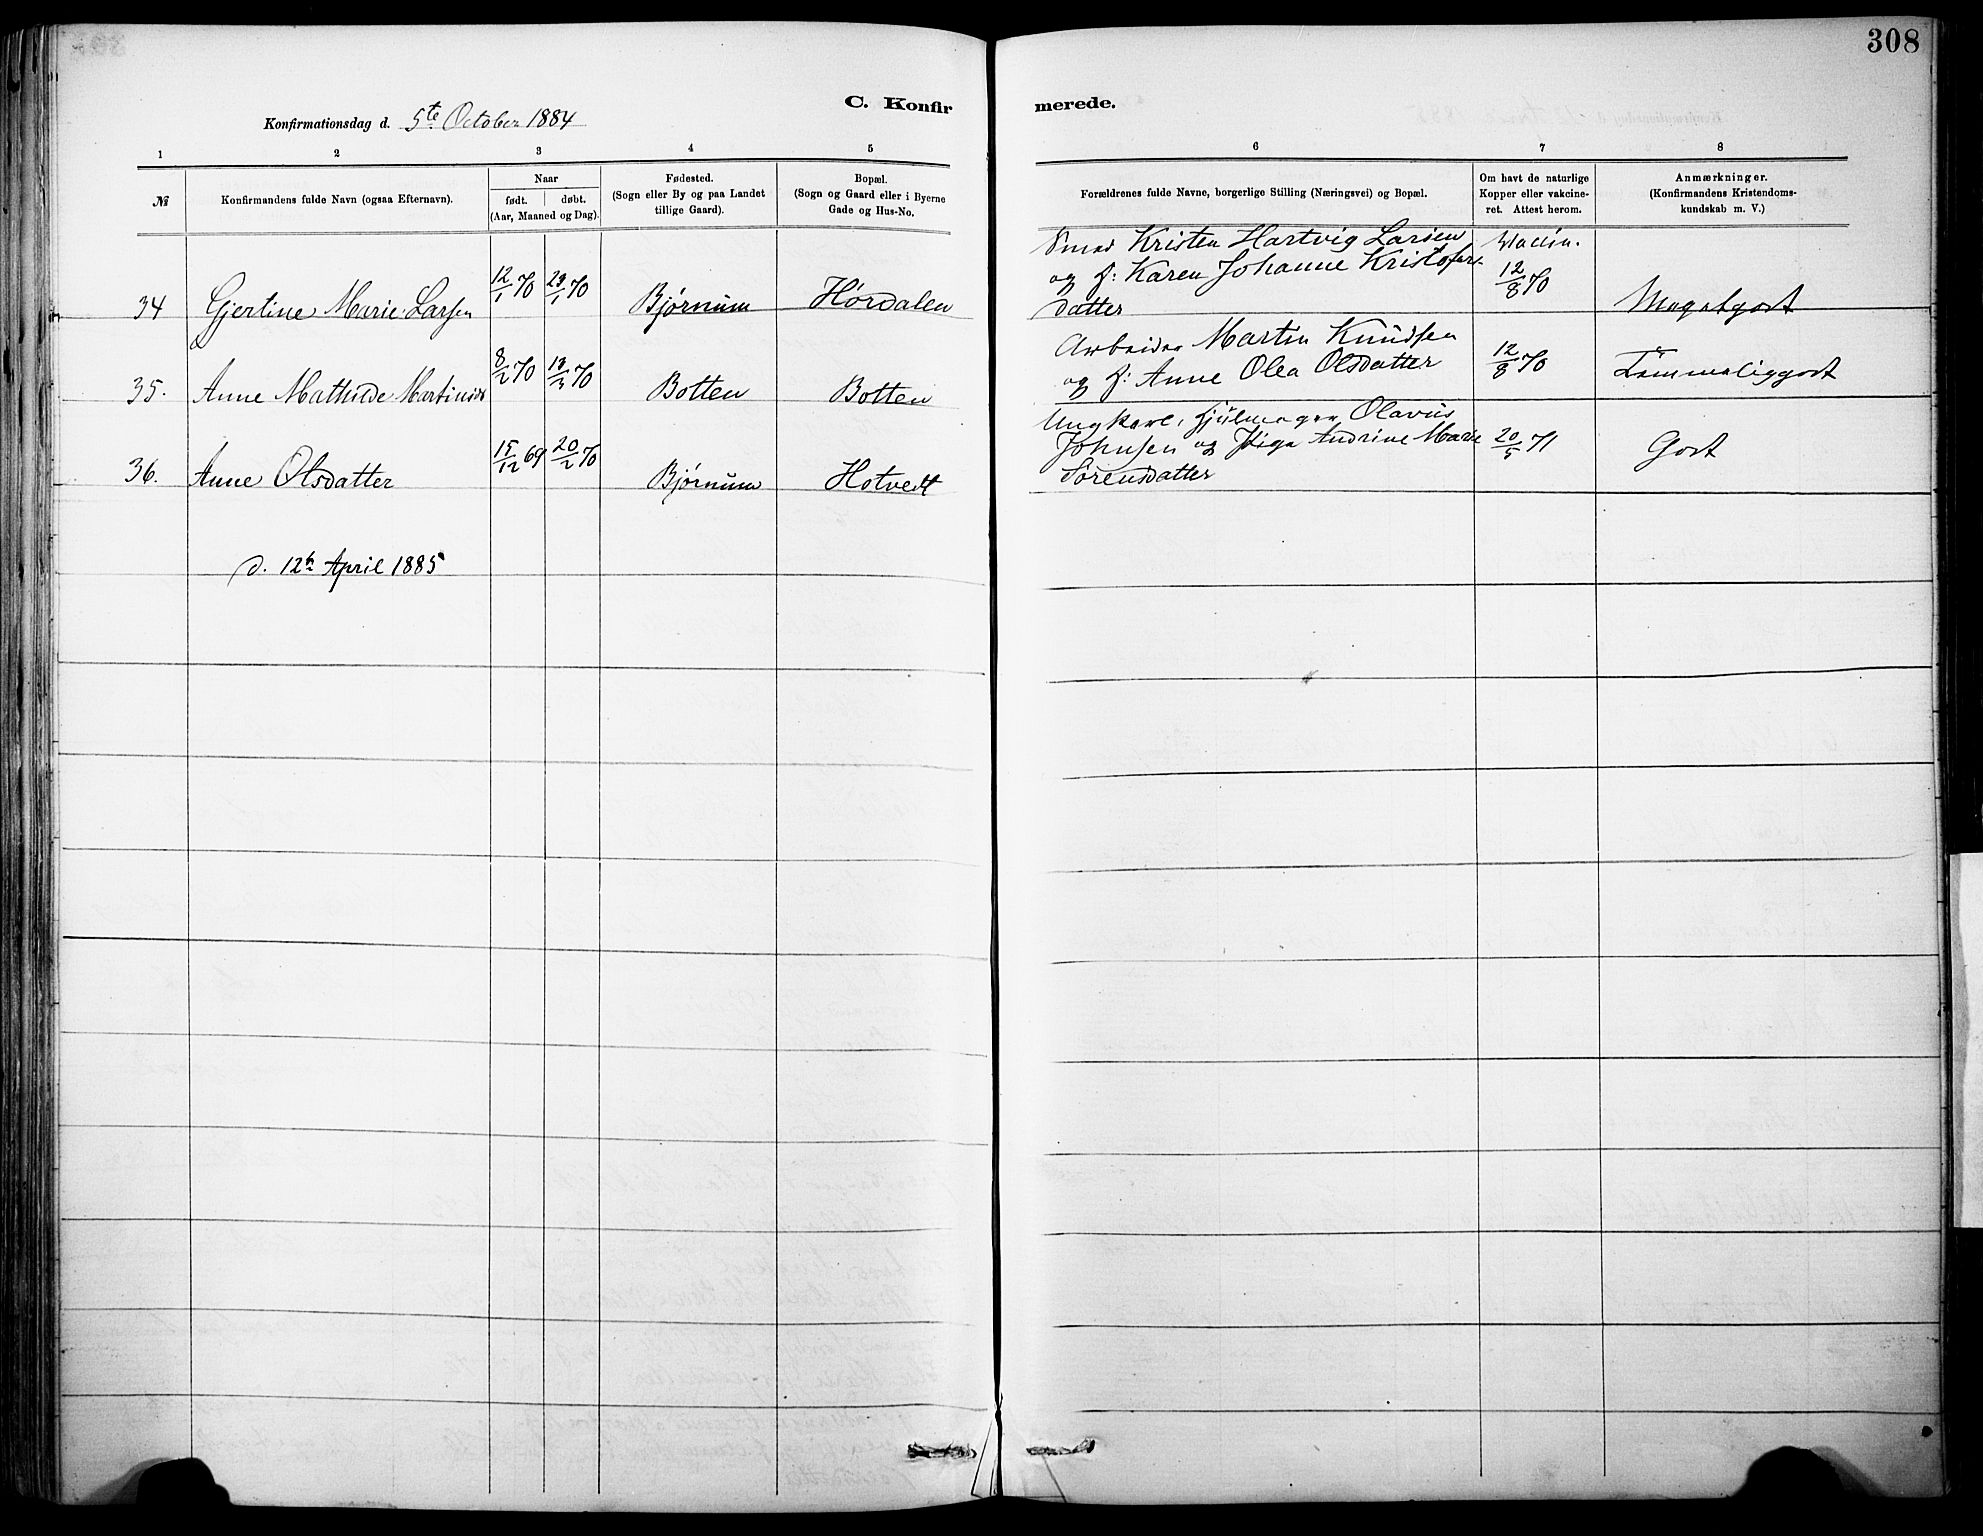 308
C. Konfir merede.
Konfirmationsdag d. 5te October 1884
1 2 3 4 5 6 7 8
№
Konfirmandens fulde Navn (ogsaa Efternavn).
Naar
født. døbt.
(Aar, Maaned og Dag).
Fødested.
(Sogn eller By og paa Landet
tillige Gaard).
Bopæl.
(Sogn og Gaard eller i Byerne
Gade og Hus-No.
Forældrenes fulde Navne, borgerlige Stilling (Næringsvei) og Bopæl.
Om havt de naturlige
Kopper eller vakcine-
ret. Attest herom.
Anmærkninger.
(Konfirmandens Kristendoms-
kundskab m. V.)
34 Gjertine Marie Larsen 12/1 70 23/1 70 Bjørnum Hørdalen
Smed Kristen Hartvig Larsen
og H: Karen Johanne Kristofers-
datter
Vaccin.
12/8 70
Megetgodt
35. Anne Mathilde Martinsd 8/2 70 13/3 70 Botten Botten
Arbeider Martin Knudsen
og H: Anne Olea Olsdatter
12/8 70
Temmeliggodt
36. Anne Olsdatter 15/12 69 20/2 70 Bjørnum Hotvedt
Ungkarl, Hjulmager Olavus
Johnsen og Pige Andrine Marie
Sørensdatter
20/5 71
Godt
d. 12te April 1885